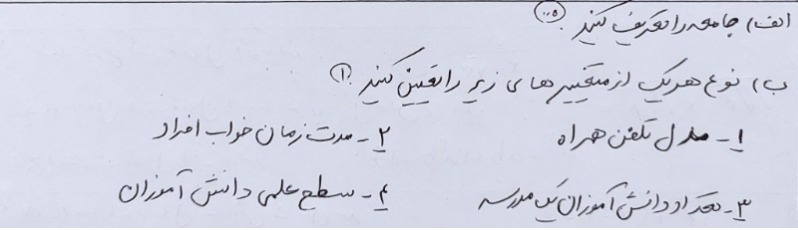 الف) جامعه را تعریف کنید. (۰/۵)
ب) نوع هریک از متغییرهای زیر را تعیین کنید. (۱)
۱- مدل تلفن همراه ۲- مدت زمان خواب افراد
۳- تعداد دانش آموزان یک مدرسه ۴- سطح علمی دانش آموزان